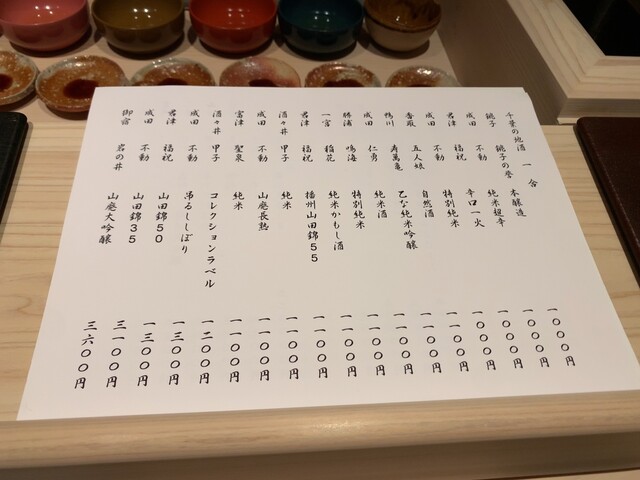 千葉の地酒 一合
銚子 銚子の誉 本醸造 一〇〇〇円
成田 不動 純米超辛 一〇〇〇円
君津 福祝 辛口一火 一〇〇〇円
成田 不動 特別純米 一〇〇〇円
成田 五人娘 自然酒 一一〇〇円
香取 寿萬亀 乙な純米吟醸 一一〇〇円
鴨川 仁勇 純米酒 一一〇〇円
勝浦 鳴海 特別純米 一一〇〇円
一宮 稲花 純米かもし酒 一一〇〇円
君津 福祝 播州山田錦55 一一〇〇円
酒々井 甲子 純米 一一〇〇円
成田 不動 山廃長熟 一一〇〇円
富津 聖泉 純米 一一〇〇円
酒々井 甲子 コレクションラベル 一二〇〇円
成田 不動 吊るししぼり 一三〇〇円
君津 福祝 山田錦50 一三〇〇円
成田 不動 山田錦35 三一〇〇円
御宿 岩の井 山廃大吟醸 三六〇〇円